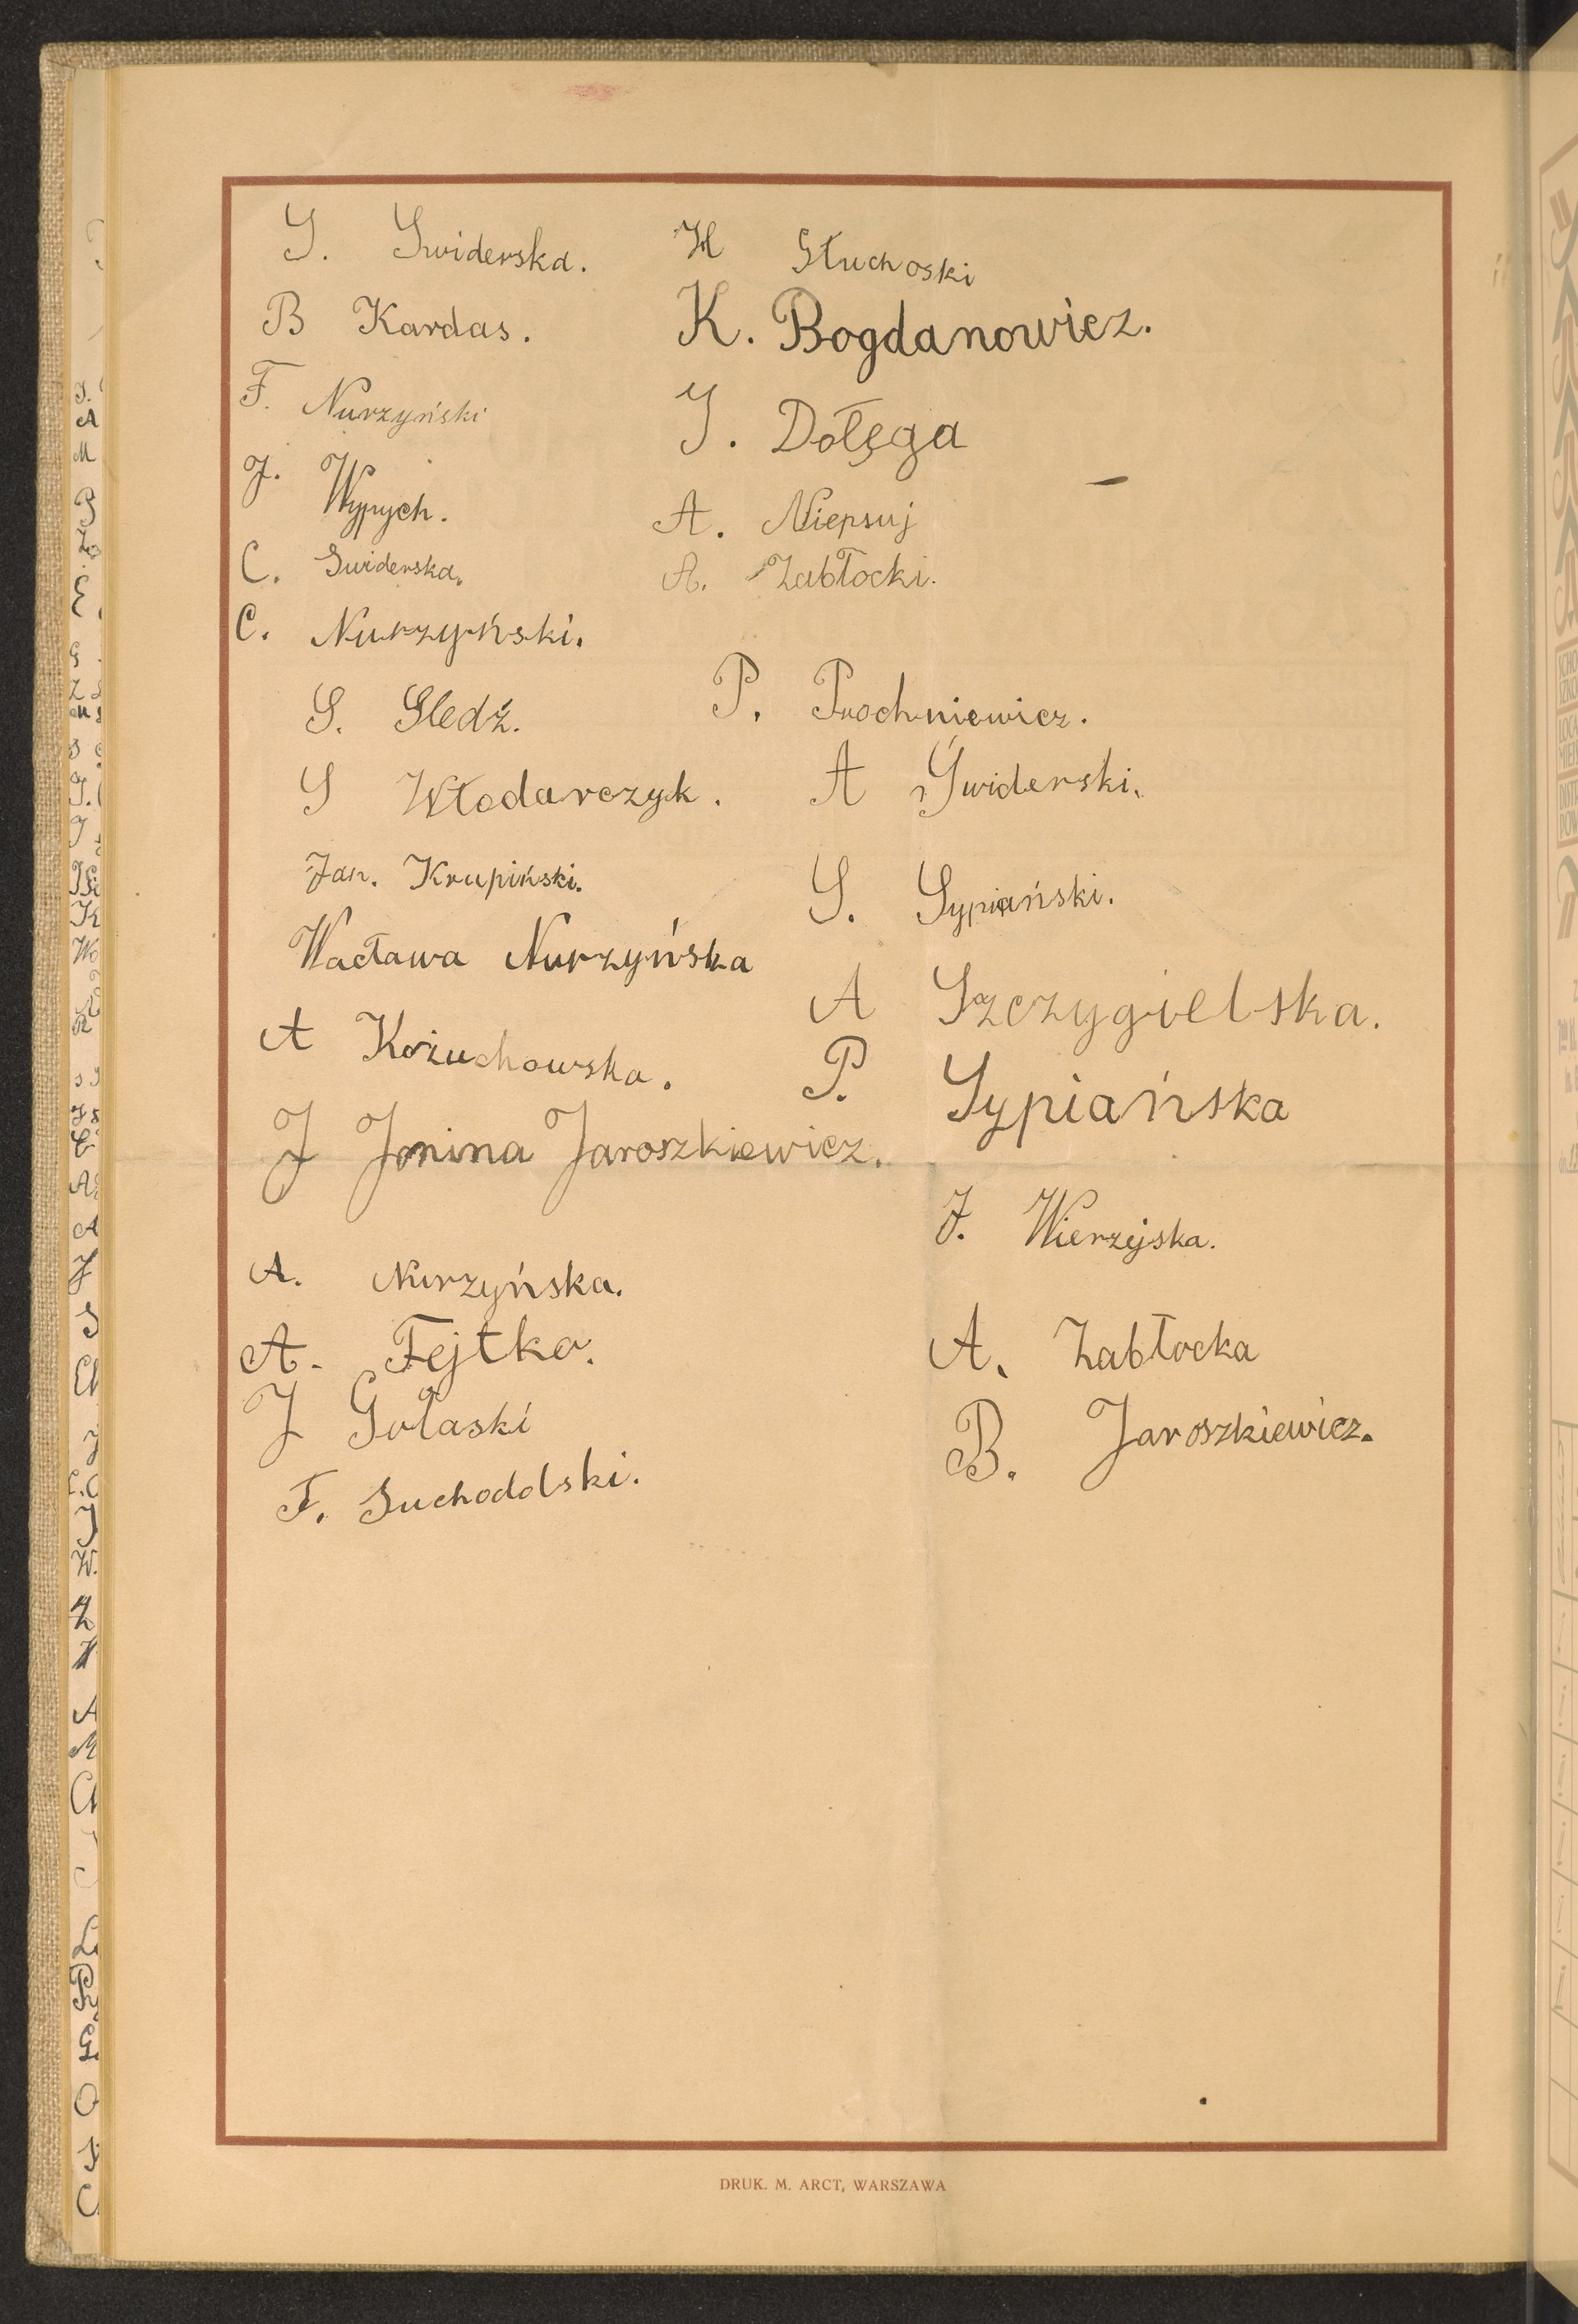 S. Swiderska.
B Kardas.
F. Nurzyński
J. Wypych.
C. Swiderska.
C. Nurzyński.
S. Sledź.
S Włodarczyk.
Jan. Krupiński.
Wacława Nurzyńska
A Kożuchowska.
J Jonina Jaroszkiewicz.
A. Nurzyńska.
A. Fejtko.
J Gołaski
F. Suchodolski.
H Słuchoski
K. Bogdanowicz.
J. Dołęga
A. Niepsuj
A. Zabłocki.
P. Prochniewicz.
A Świderski.
S. Sypiański.
A Szczygielska.
P. Sypiańska
J. Wierzejska.
A. Zabłocka
B. Jaroszkiewicz.
DRUK. M. ARCT, WARSZAWA